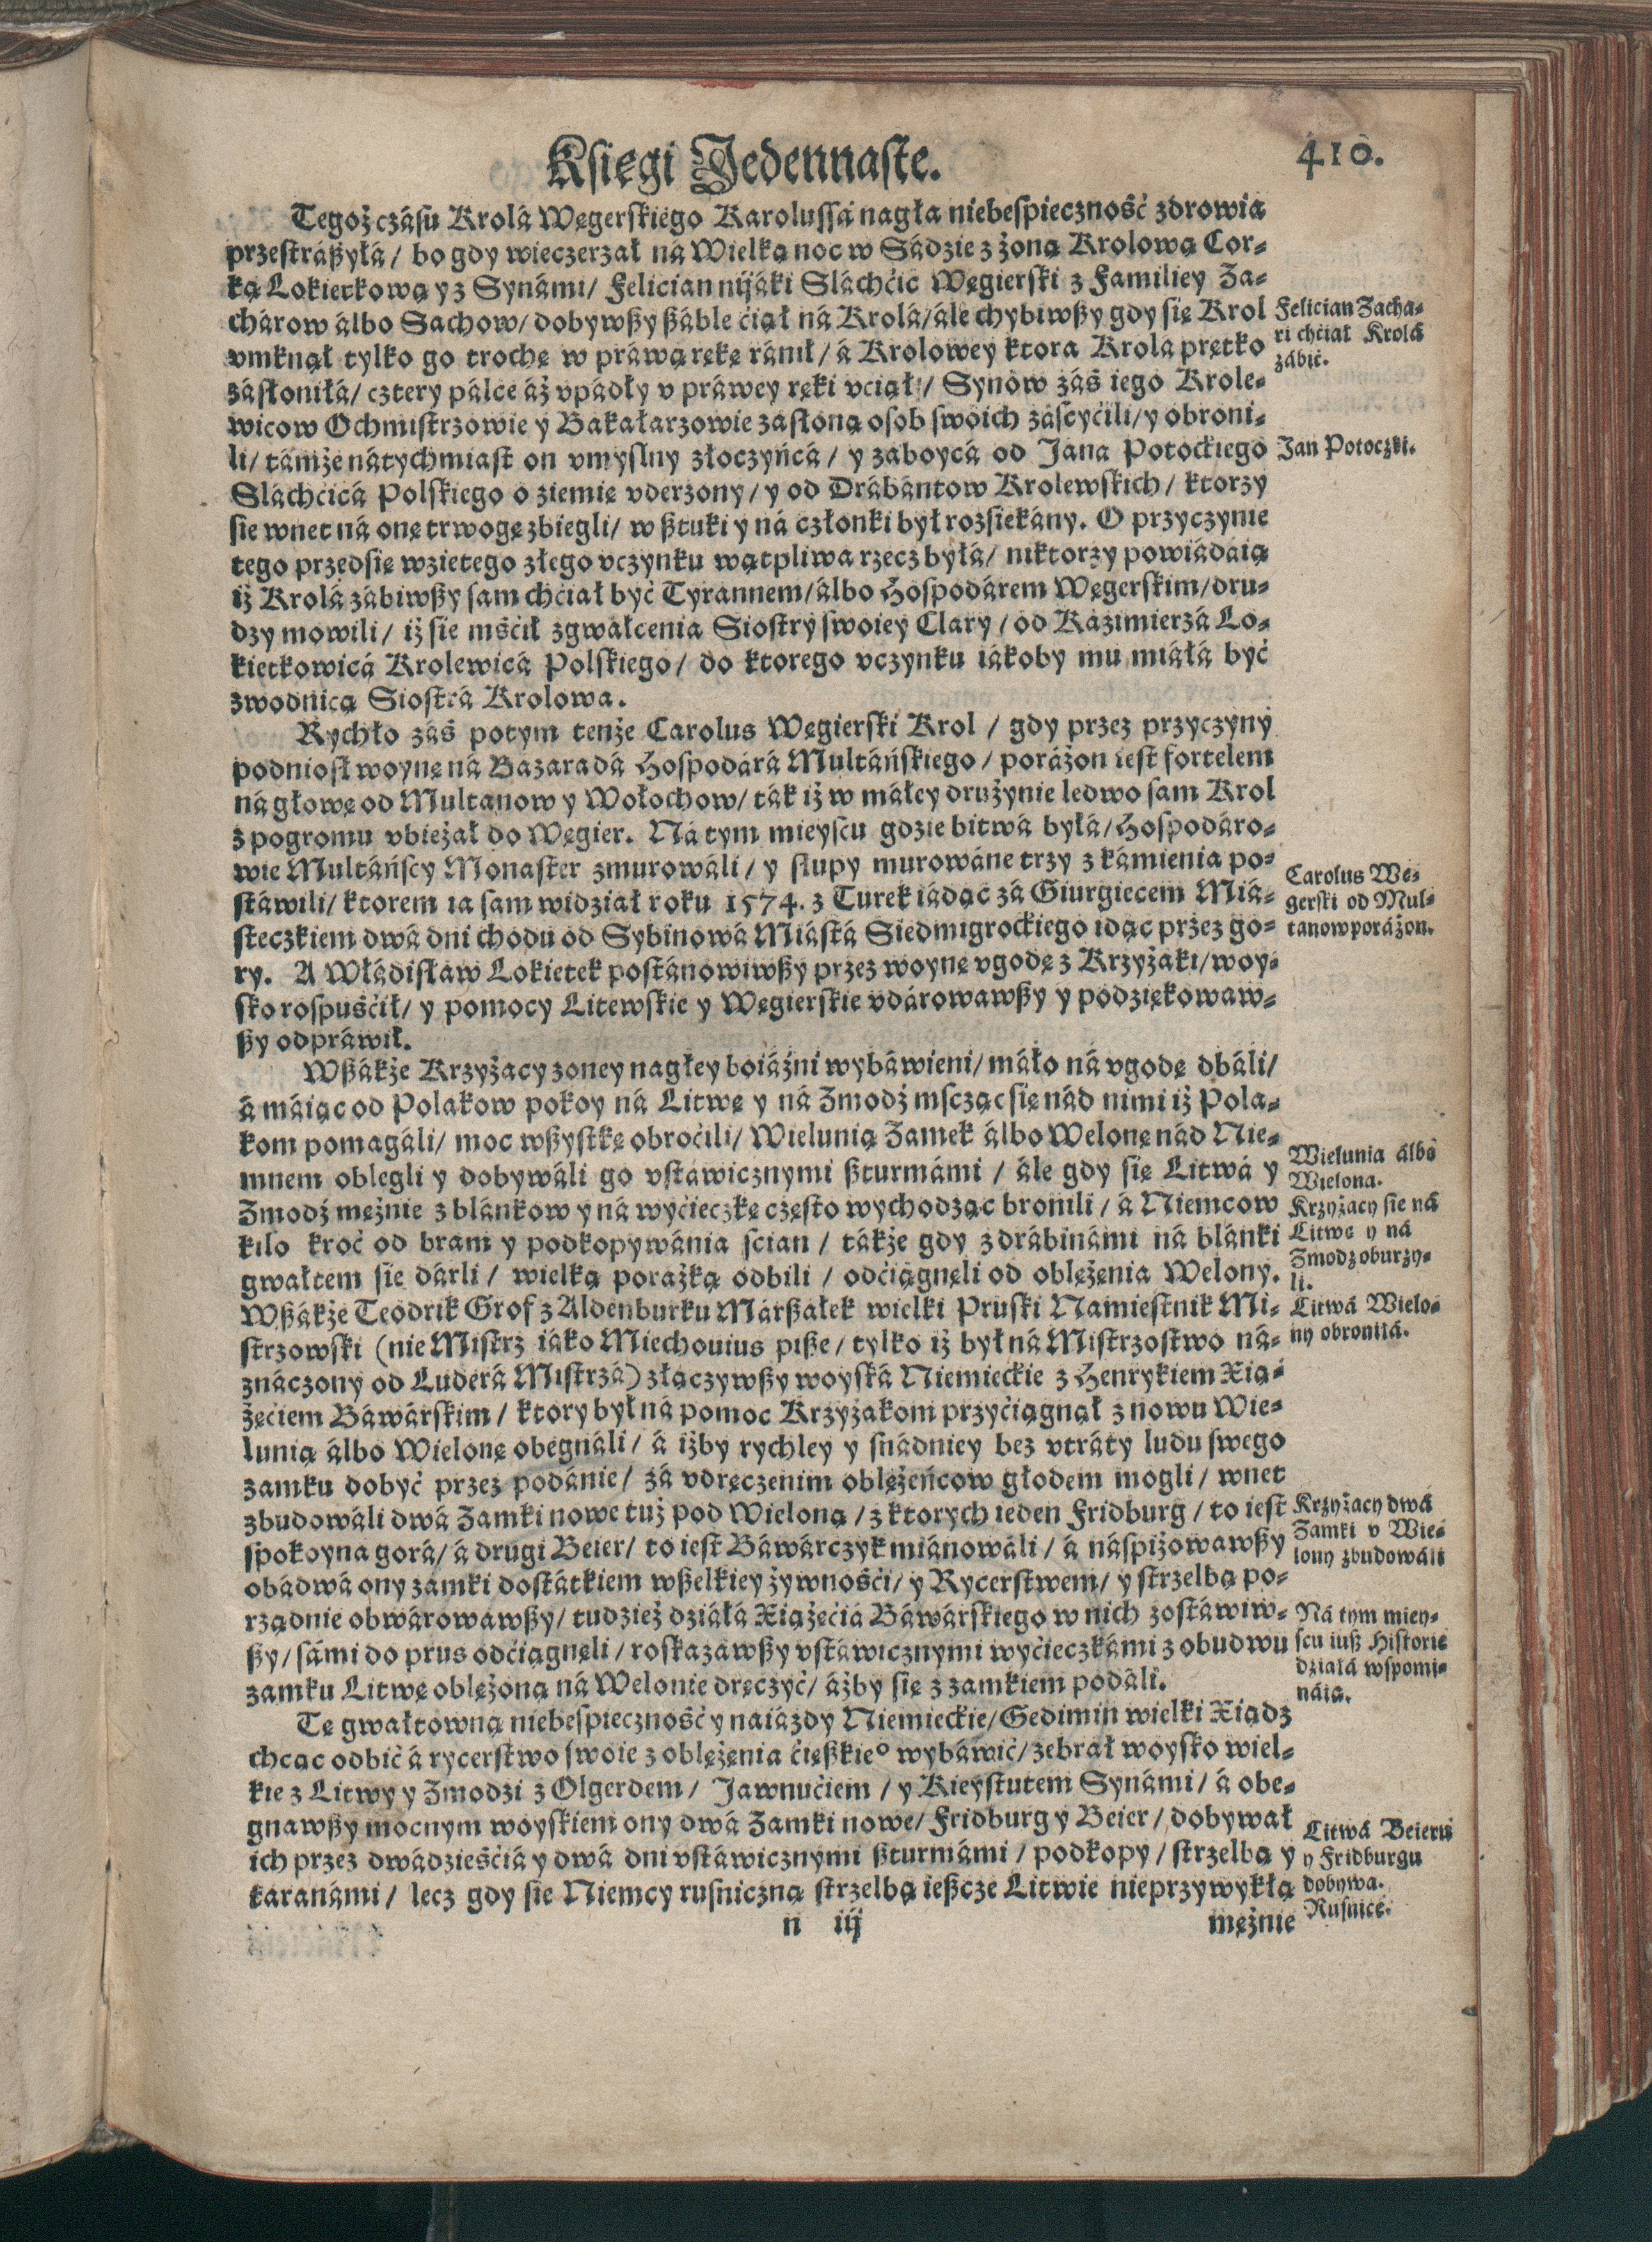 Księgi Jedennaste.
410.
Tegoż czásu Krolá Węgerskiego Karolussá nagła niebespieczność zdrowia
przestrászyłá / bo gdy wieczerzał ná Wielką noc w Sádzie z żoną Krolową Cor-
ką Lokietkową y z Synámi / Felician nijáki Sláchćic Węgierski z Familiey Za-
chárow álbo Sachow / dobywszy száble ćiął ná Krolá / ále chybiwszy gdy się Krol
vmknął tylko go trochę w práwą rękę ránił / á Krolowey ktora Krola prętko
zásłoniłá / cztery pálce áż vpádły v práwey ręki vciął / Synow záś iego Krole-
wicow Ochmistrzowie y Bakałarzowie zasłoną osob swoich zászczyćili / y obroni-
li / támże nátychmiast on vmyslny złoczyńcá / y zaboycá od Jana Potockiego
Sláchćicá Polskiego o ziemię vderzony / y od Drábántow Krolewskich / ktorzy
sie wnet ná onę trwogę zbiegli / w sztuki y ná członki był rozsiekány. O przyczynie
tego przedsię wzietego złego vczynku wątpliwa rzecz byłá / niktorzy powiádáią
iż Krolá zábiwszy sam chćiał być Tyrannem / álbo Hospodárem Węgerskim / dru-
dzy mowili / iż sie mśćił zgwałcenia Siostry swoiey Clary / od Kázimierzá Lo-
kietkowicá Krolewicá Polskiego / do ktorego vczynku iákoby mu miáłá być
zwodnicą Siostrá Krolowa.
Rychło záś potym tenże Carolus Węgierski Krol / gdy przez przyczyny
podniosł woynę ná Bazaradá Hospodárá Multáńskiego / poráżon iest fortelem
ná głowę od Multanow y Wołochow / ták iż w máłey drużynie ledwo sam Krol
z pogromu vbieżał do Węgier. Ná tym mieyscu gdzie bitwá byłá / Hospodáro-
wie Multáńscy Monaster zmurowáli / y słupy murowáne trzy z kámienia po-
stáwili / ktorem ia sam widział roku 1574. z Turek iádąc zá Giurgiecem Miá-
steczkiem dwá dni chodu od Sybinowá Miástá Siedmigrockiego idąc przez go-
ry. A Włádisław Lokietek postánowiwszy przez woynę vgodę z Krzyżaki / woy-
sko rospuśćił / y pomocy Litewskie y Węgierskie vdárowawszy y podziękowaw-
szy odpráwił.
Wszákże Krzyżacy z oney nagłey boiáźni wybáwieni / máło ná vgodę dbáli /
á máiąc od Polakow pokoy ná Litwę y ná Zmodź mscząc się nád nimi iż Pola-
kom pomagáli / moc wszystkę obroćili / Wielunią Zamek álbo Welonę nád Nie-
mnem oblegli y dobywáli go vstáwicznymi szturmámi / ále gdy się Litwá y
Zmodź mężnie z blánkow y ná wyćieczkę często wychodząc bronili / á Niemcow
kilo kroć od bram y podkopywánia scian / tákże gdy z drábinámi ná blánki
gwałtem sie dárli / wielką porażką odbili / odćiągnęli od oblężenia Welony.
Wszákże Teodrik Grof z Aldenburku Márszałek wielki Pruski Namiestnik Mi-
strzowski (nie Mistrz iáko Miechouius pisze / tylko iż był ná Mistrzostwo ná-
znáczony od Luderá Mistrzá) złączywszy woyská Niemieckie z Henrykiem Xią-
żęćiem Báwárskim / ktory był ná pomoc Krzyżakom przyćiągnął z nowu Wie-
lunią álbo Wielonę obegnáli / á iżby rychley y snádniey bez vtráty ludu swego
zamku dobyć przez podánie / zá vdręczenim oblężeńcow głodem mogli / wnet
zbudowáli dwá Zamki nowe tuż pod Wieloną / z ktorych ieden Fridburg / to iest
spokoyna gorá / á drugi Beier / to iest Báwárczyk miánowáli / á náspiżowawszy
obádwá ony zamki dostátkiem wszelkiey żywnośći / y Rycerstwem / y strzelbą po-
rządnie obwárowawszy / tudzież dziáłá Xiążęćiá Báwárskiego w nich zostáwiw-
szy / sámi do prus odćiągnęli / roskazawszy vstáwicznymi wyćieczkámi z obudwu
zamku Litwę oblężoną ná Welonie dręczyć / áżby się z zamkiem podáli.
Tę gwałtowną niebespieczność y naiázdy Niemieckie / Gedimin wielki Xiądz
chcąc odbić á rycerstwo swoie z oblężenia ćięszkie° wybáwić / zebrał woysko wiel-
kie z Litwy y Zmodzi z Olgerdem / Jawnućiem / y Kieystutem Synámi / á obe-
gnawszy mocnym woyskiem ony dwá Zamki nowe / Fridburg y Beier / dobywał
ich przez dwádzieśćiá y dwá dni vstáwicznymi szturmámi / podkopy / strzelbą y
taranámi / lecz gdy sie Niemcy rusniczną strzelbą ieszcze Litwie nieprzywykłą
n iij
mężnie
Felician Zacha-
ri chćiał Krolá
zábić.
Jan Potoczki.
Carolus We-
gerski od Mul-
tanow poráżon.
Wielunia álbo
Wielona.
Krzyżacy sie ná
Litwę y ná
Zmodz oburzy-
li.
Litwá Wielo-
ny obroniłá.
Krzyżacy dwá
Zamki v Wie-
lony zbudowáli
Ná tym miey-
scu iusz Historie
dziáłá wspomi-
náią.
Litwá Beieru
y Fridburgu
dobywa.
Rusnice.